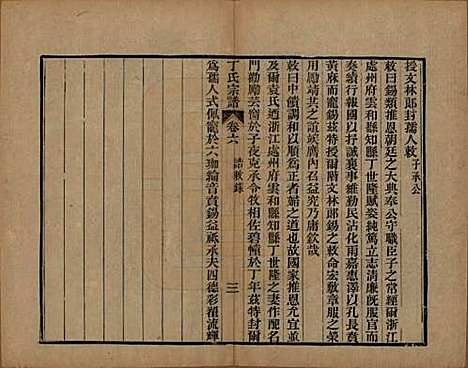 授文林郎封孺人敕 子承公
敕曰錫類推恩朝廷之大典奉公守職臣子之常經爾浙江
處州府雲和縣知縣丁世隆賦姿純篤立志清廉旣服官而
奏績行報國以抒誠襄事維勤民沾化雨嘉惠澤以孔長貴
黃麻而寵錫茲特授爾階文林郎錫之敕命宏敷章服之榮
用勵靖共之誼欽膺內召益宄乃庸欽哉
敕曰中饋調和以爲正者婦之道故國家推恩尤宜並
及爾袁氏迺浙江處州府雲和縣知縣丁世隆之妻作配名
門勷勵
於子夜克承令牧相佐碧幢於丁年茲特封爾
爲孺人式佩寵於六珈綸音賁錫益祗承夫四德彩翟流輝
丁氏宗譜
卷六
誥敕錄
三